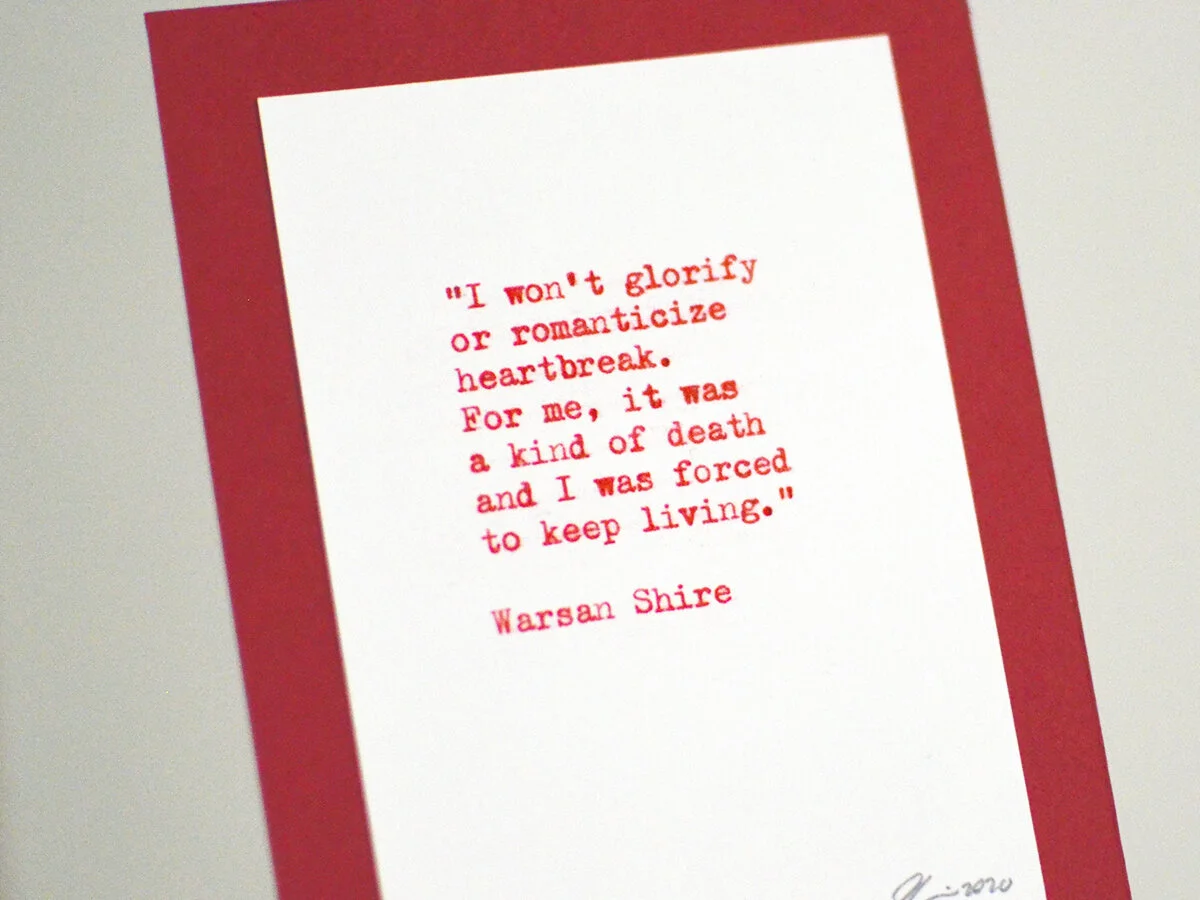 "I won't glorify
or romanticize
heartbreak.
For me, it was
a kind of death
and I was forced
to keep living."
Warsan Shire
2020